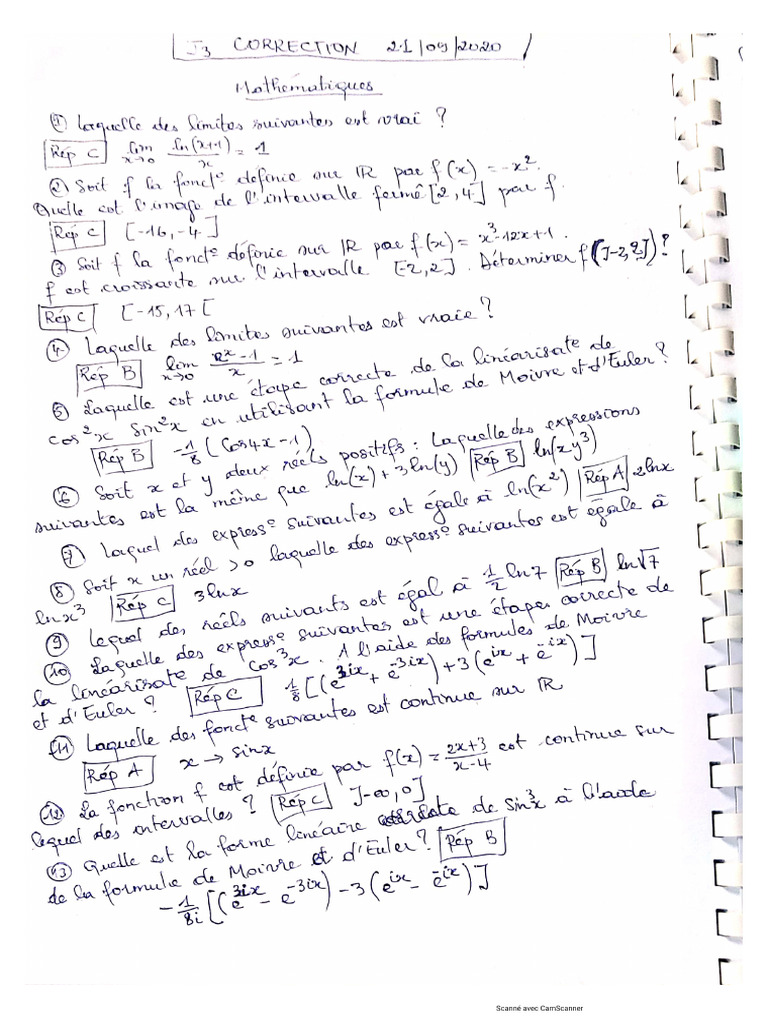 J3 CORRECTION 21/09/2020
Mathématiques
① laquelle des limites suivantes est vrai ?
Rép C lim x→0 ln(x+1)/x = 1
② Soit f la fonct° définie sur IR par f(x) = -x².
Quelle est l'image de l'intervalle fermé [2,4] par f.
Rép C [-16,-4]
③ Soit f la fonct° définie sur IR par f(x) = x³-12x+1.
f est croissante sur l'intervalle [-2,2]. Déterminer f(]-2,2])?
Rép C [-15,17[
④ Laquelle des limites suivantes est vraie ?
Rép B lim x→0 (e^x-1)/x = 1
⑤ Laquelle est une étape correcte de la linéarisat° de
cos²x sin²x en utilisant la formule de Moivre et d'Euler ?
Rép B -1/8 (cos4x-1)
⑥ Soit x et y deux réels positifs : laquelle des expressions
suivantes est la même que ln(x)+3ln(y) Rép B ln(xy³)
⑦ laquel des express° suivantes est égale à ln(x²) Rép A 2lnx
⑧ Soit x un réel >0 laquelle des express° suivantes est égale à
lnx³ Rép C 3lnx
⑨ lequel des réels suivants est égal à 1/2 ln7 Rép B ln√7
⑩ Laquelle des express° suivantes est une étape correcte de
la linéarisat° de cos³x. A l'aide des formules de Moivre
et d'Euler ? Rép C 1/8 [(e^3ix + e^-3ix) + 3(e^ix + e^-ix)]
⑪ Laquelle des fonct° suivantes est continue sur IR
Rép A x → sinx
⑫ La fonction f est définie par f(x) = (2x+3)/(x-4) est continue sur
lequel des intervalles ? Rép C ]-∞,0]
⑬ Quelle est la forme linéaire de sin³x à l'aide
de la formule de Moivre et d'Euler ? Rép B
-1/8i [(e^3ix - e^-3ix) - 3(e^ix - e^-ix)]
Scanné avec CamScanner